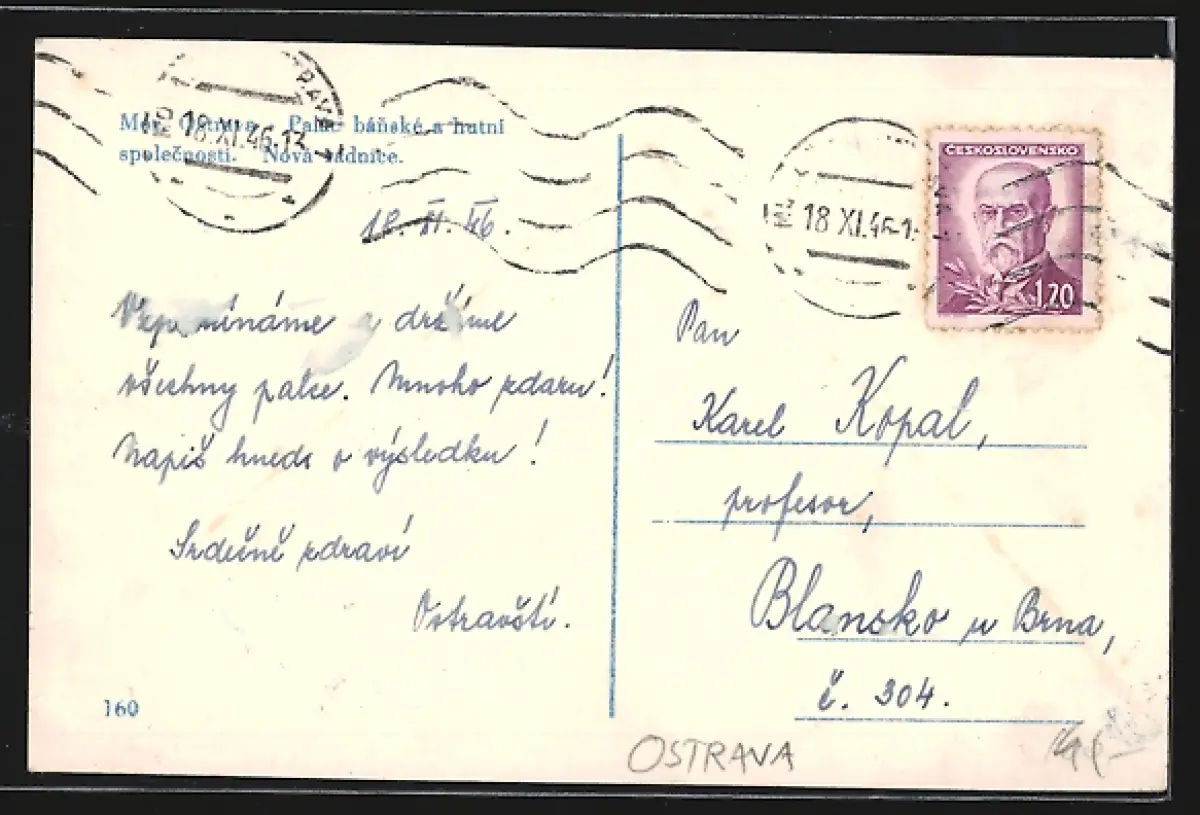 Mor. Ostrava - Palác báňské a hutní
společnosti. Nová radnice.
18. XI. 46.
Vzpomínáme a držíme
všechny palce. Mnoho zdaru!
Napiš hned o výsledku!
Srdečně zdraví
Ostravští.
160
18 XI.46-13
18 XI.46-1
ČESKOSLOVENSKO
1.20
Pan
Karel Kopal,
profesor,
Blansko u Brna,
č. 304.
OSTRAVA